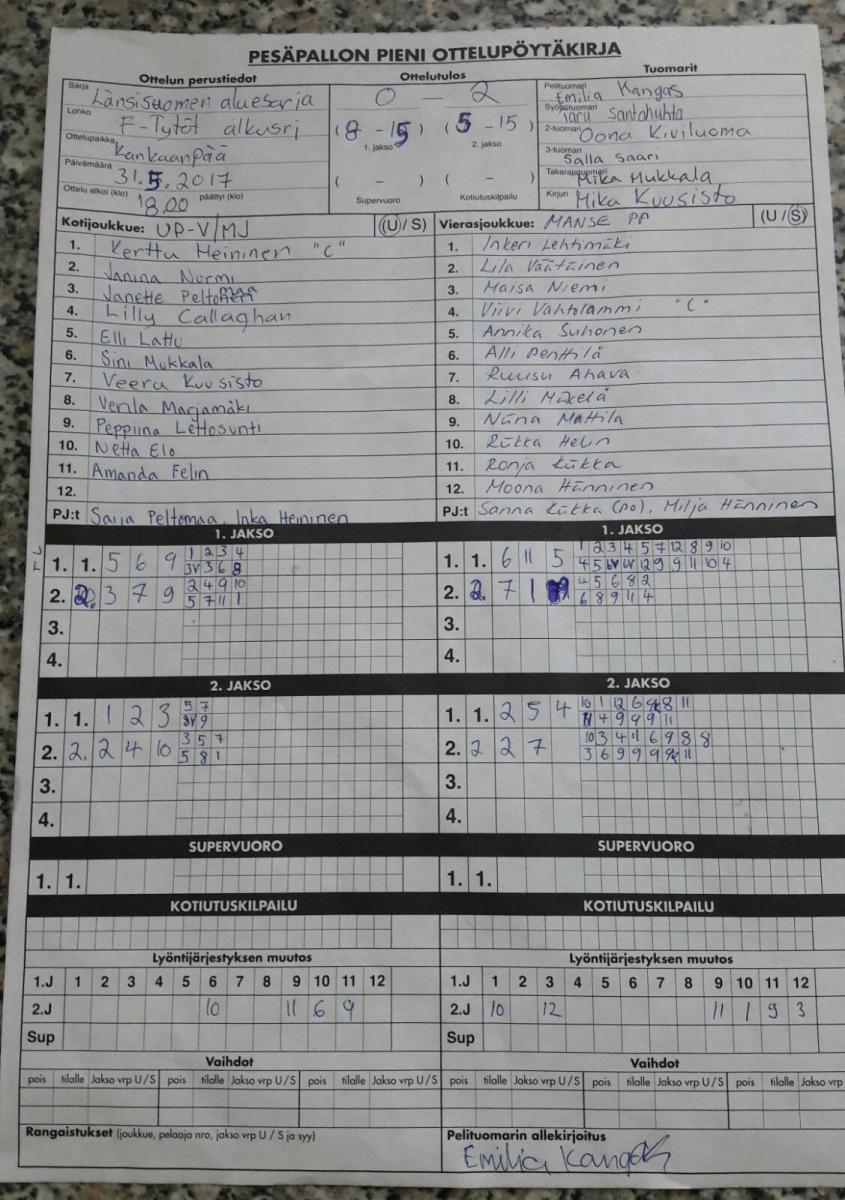 PESÄPALLON PIENI OTTELUPÖYTÄKIRJA
Ottelun perustiedot Ottelutulos Tuomarit
Sarja Länsisuomen aluesarja
Lohko F-Tytöt alkusrj
Ottelupaikka Kankaanpää
Päivämäärä 31.5.2017
Ottelu alkoi (klo) 18.00 päättyi (klo)
0 - 2
(8 - 15) (5 - 15)
1. jakso 2. jakso
( - ) ( - )
Supervuoro Kotiutuskilpailu
Pelituomari Emilia Kangas
Syöttötuomari Taru Santahuhta
2-tuomari Oona Kiviluoma
3-tuomari Salla Saari
Takarajatuomari Mika Mukkala
Kirjuri Mika Kuusisto
Kotijoukkue: UP-V/MJ (U/S)
1. Kerttu Heininen "C"
2. Janina Nurmi
3. Janette Peltomaa
4. Lilly Callaghan
5. Elli Lattu
6. Sini Mukkala
7. Veera Kuusisto
8. Venla Marjamäki
9. Peppiina Lettosunti
10. Netta Elo
11. Amanda Felin
12.
PJ:t Saija Peltomaa, Inka Heininen
Vierasjoukkue: MANSE PP (U/S)
1. Inkeri Lehtimäki
2. Lila Väätäinen
3. Maisa Niemi
4. Viivi Vahtolammi "C"
5. Annika Suhonen
6. Alli Penttilä
7. Ruusu Ahava
8. Lilli Mäkelä
9. Niina Mattila
10. Riikka Helin
11. Ronja Kiikka
12. Moona Hänninen
PJ:t Sanna Kiikka (po), Milja Hänninen
1. JAKSO 1. JAKSO
1. 1. 5 6 9 1 2 3 4
3V 3 6 8
2. 2. 3 7 9 2 4 9 10
5 7 11 1
3.
4.
1. 1. 6 11 5 1 2 3 4 5 7 12 8 9 10
4 5 6V 6V 12 9 9 11 10 4
2. 2. 7 1 4 5 6 8 2
6 8 9 11 4
3.
4.
2. JAKSO 2. JAKSO
1. 1. 1 2 3 5 7
8V 9
2. 2. 2 4 10 3 5 7
5 8 1
3.
4.
1. 1. 2 5 4 10 1 12 6 8 11
4 9 9 9 11
2. 2 2 7 10 3 4 11 6 9 8 8
3 6 9 9 9 11
3.
4.
SUPERVUORO SUPERVUORO
1. 1. 1. 1.
KOTIUTUSKILPAILU KOTIUTUSKILPAILU
Lyöntijärjestyksen muutos Lyöntijärjestyksen muutos
1.J 1 2 3 4 5 6 7 8 9 10 11 12
2.J 10 11 6 9
Sup
1.J 1 2 3 4 5 6 7 8 9 10 11 12
2.J 10 12 11 1 9 3
Sup
Vaihdot Vaihdot
pois tilalle Jakso vrp U/S pois tilalle Jakso vrp U/S pois tilalle Jakso vrp U/S
pois tilalle Jakso vrp U/S pois tilalle Jakso vrp U/S pois tilalle Jakso vrp
Rangaistukset (joukkue, pelaaja nro, jakso vrp U / S ja syy)
Pelituomarin allekirjoitus
Emilia Kangas